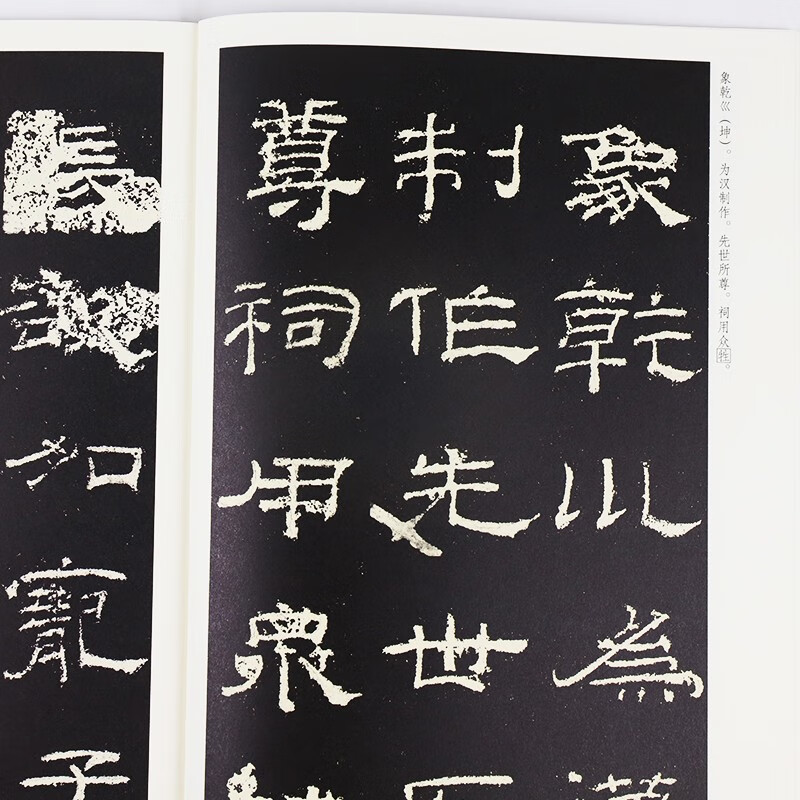 象乾巛（坤）。为汉制作。先世所尊。祠用众牲。
象乾巛為漢
制作先世
尊祠用眾
加寵子